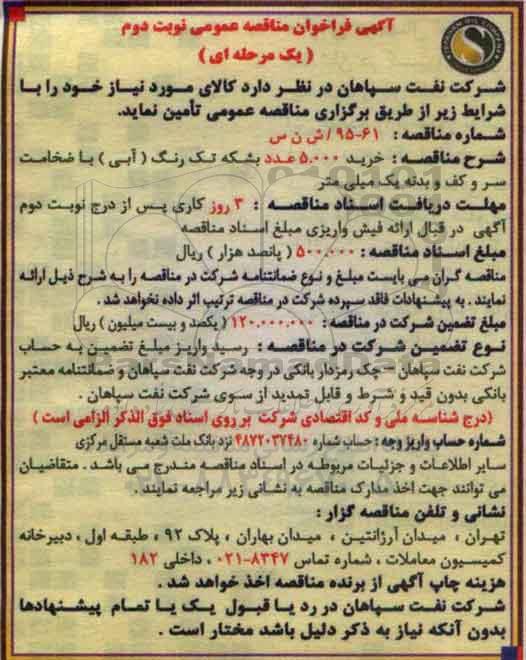 آگهی فراخوان مناقصه عمومی نوبت دوم
( یک مرحله ای )
شرکت نفت سپاهان در نظر دارد کالای مورد نیاز خود را با
شرایط زیر از طریق برگزاری مناقصه عمومی تأمین نماید.
شماره مناقصه : ۶۱-۹۵ / ش ن س
شرح مناقصه : خرید ۵.۰۰۰ عدد بشکه تک رنگ ( آبی ) با ضخامت
سر و کف و بدنه یک میلی متر
مهلت دریافت اسناد مناقصه : ۳ روز کاری پس از درج نوبت دوم
آگهی در قبال ارائه فیش واریزی مبلغ اسناد مناقصه
مبلغ اسناد مناقصه : ۵۰۰.۰۰۰ ( پانصد هزار ) ریال
مناقصه گران می بایست مبلغ و نوع ضمانتنامه شرکت در مناقصه را به شرح ذیل ارائه
نمایند . به پیشنهادات فاقد سپرده شرکت در مناقصه ترتیب اثر داده نخواهد شد .
مبلغ تضمین شرکت در مناقصه : ۱۲۰.۰۰۰.۰۰۰ ( یکصد و بیست میلیون ) ریال
نوع تضمین شرکت در مناقصه : رسید واریز مبلغ تضمین به حساب
شرکت نفت سپاهان - چک رمزدار بانکی در وجه شرکت نفت سپاهان و ضمانتنامه معتبر
بانکی بدون قید و شرط و قابل تمدید از سوی شرکت نفت سپاهان .
(درج شناسه ملی و کد اقتصادی شرکت بر روی اسناد فوق الذکر الزامی است )
شماره حساب واریز وجه : حساب شماره ۴۸۷۲۰۳۷۴۸۰ نزد بانک ملت شعبه مستقل مرکزی
سایر اطلاعات و جزئیات مربوطه در اسناد مناقصه مندرج می باشد . متقاضیان
می توانند جهت اخذ مدارک مناقصه به نشانی زیر مراجعه نمایند .
نشانی و تلفن مناقصه گزار :
تهران ، میدان آرژانتین ، میدان بهاران ، پلاک ۹۲ ، طبقه اول ، دبیرخانه
کمیسیون معاملات ، شماره تماس ۸۳۴۷-۰۲۱ ، داخلی ۱۸۲
هزینه چاپ آگهی از برنده مناقصه اخذ خواهد شد .
شرکت نفت سپاهان در رد یا قبول یک یا تمام پیشنهادها
بدون آنکه نیاز به ذکر دلیل باشد مختار است .